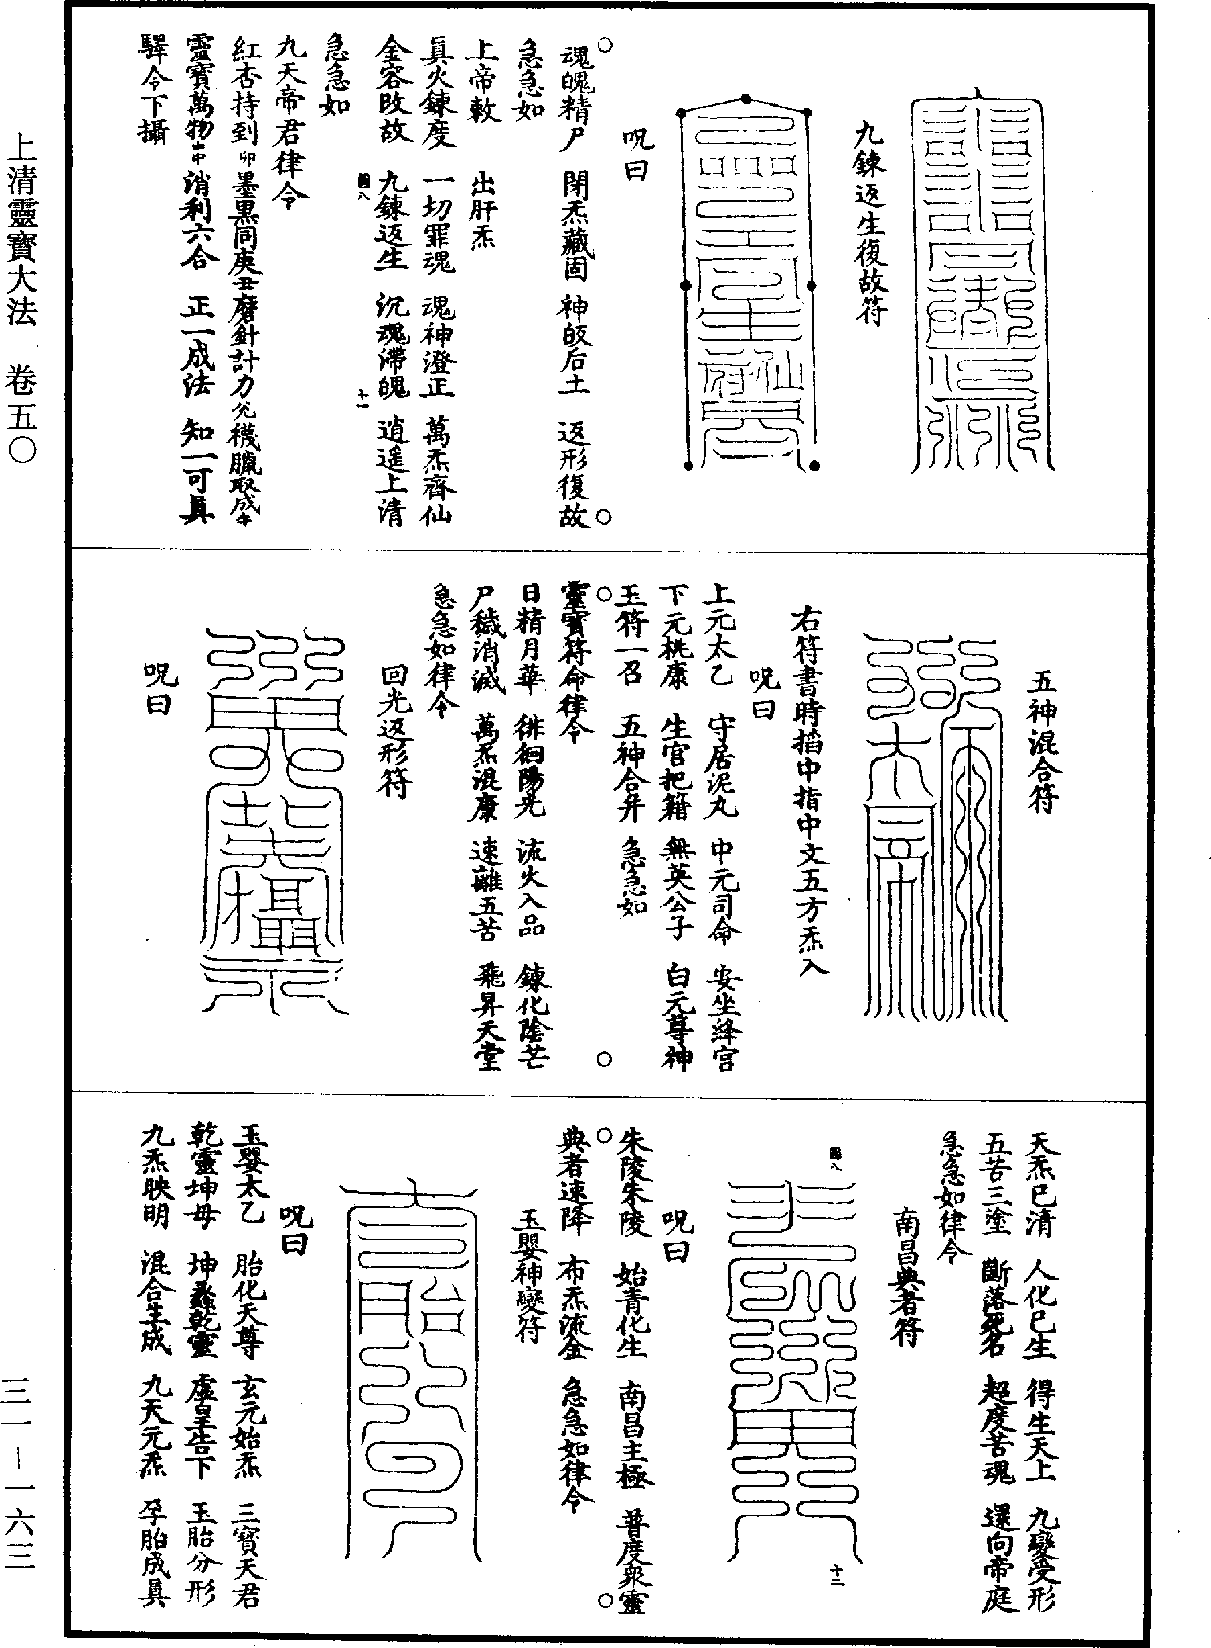 九鍊返生復故符
呪曰
魂魄精尸　閉炁藏固　神皎后土　返形復故
急急如
上帝敕　出肝炁
真火鍊度　一切罪魂　魂神澄正　萬炁齊仙
金容敗故　九鍊返生　沉魂滯魄　逍遥上清
急急如
九天帝君律令
紅杏持到卯墨黑同庚丑磨針計力
靈寶萬物　消利六合　正一成法　知一可真
驛令下攝
五神混合符
右符書時搯中指中文五方炁入
呪曰
上元太乙　守居泥丸　中元司命　安坐絳宮
下元桃康　生官把籍　無英公子　白元尊神
玉符一召　五神合并　急急如
靈寶符命律令
日精月華　徘徊陽光　流火入品　鍊化陰芒
尸穢消滅　萬炁混康　速離五苦　飛昇天堂
急急如律令
回光返形符
呪曰
天炁已清　人化已生　得生天上　九變受形
五苦三塗　斷落死名　超度苦魂　還向帝庭
急急如律令
南昌典者符
十二
呪曰
朱陵朱陵　始青化生　南昌主極　普度衆靈
典者速降　布炁流金　急急如律令
玉嬰神變符
呪曰
玉嬰太乙　胎化天尊　玄元始炁　三寶天君
乾靈坤母　坤母乾靈　虛皇告下　玉胎分形
九炁映明　混合生成　九天元炁　孕胎成真
上清靈寶大法　卷五〇
三一－一六三